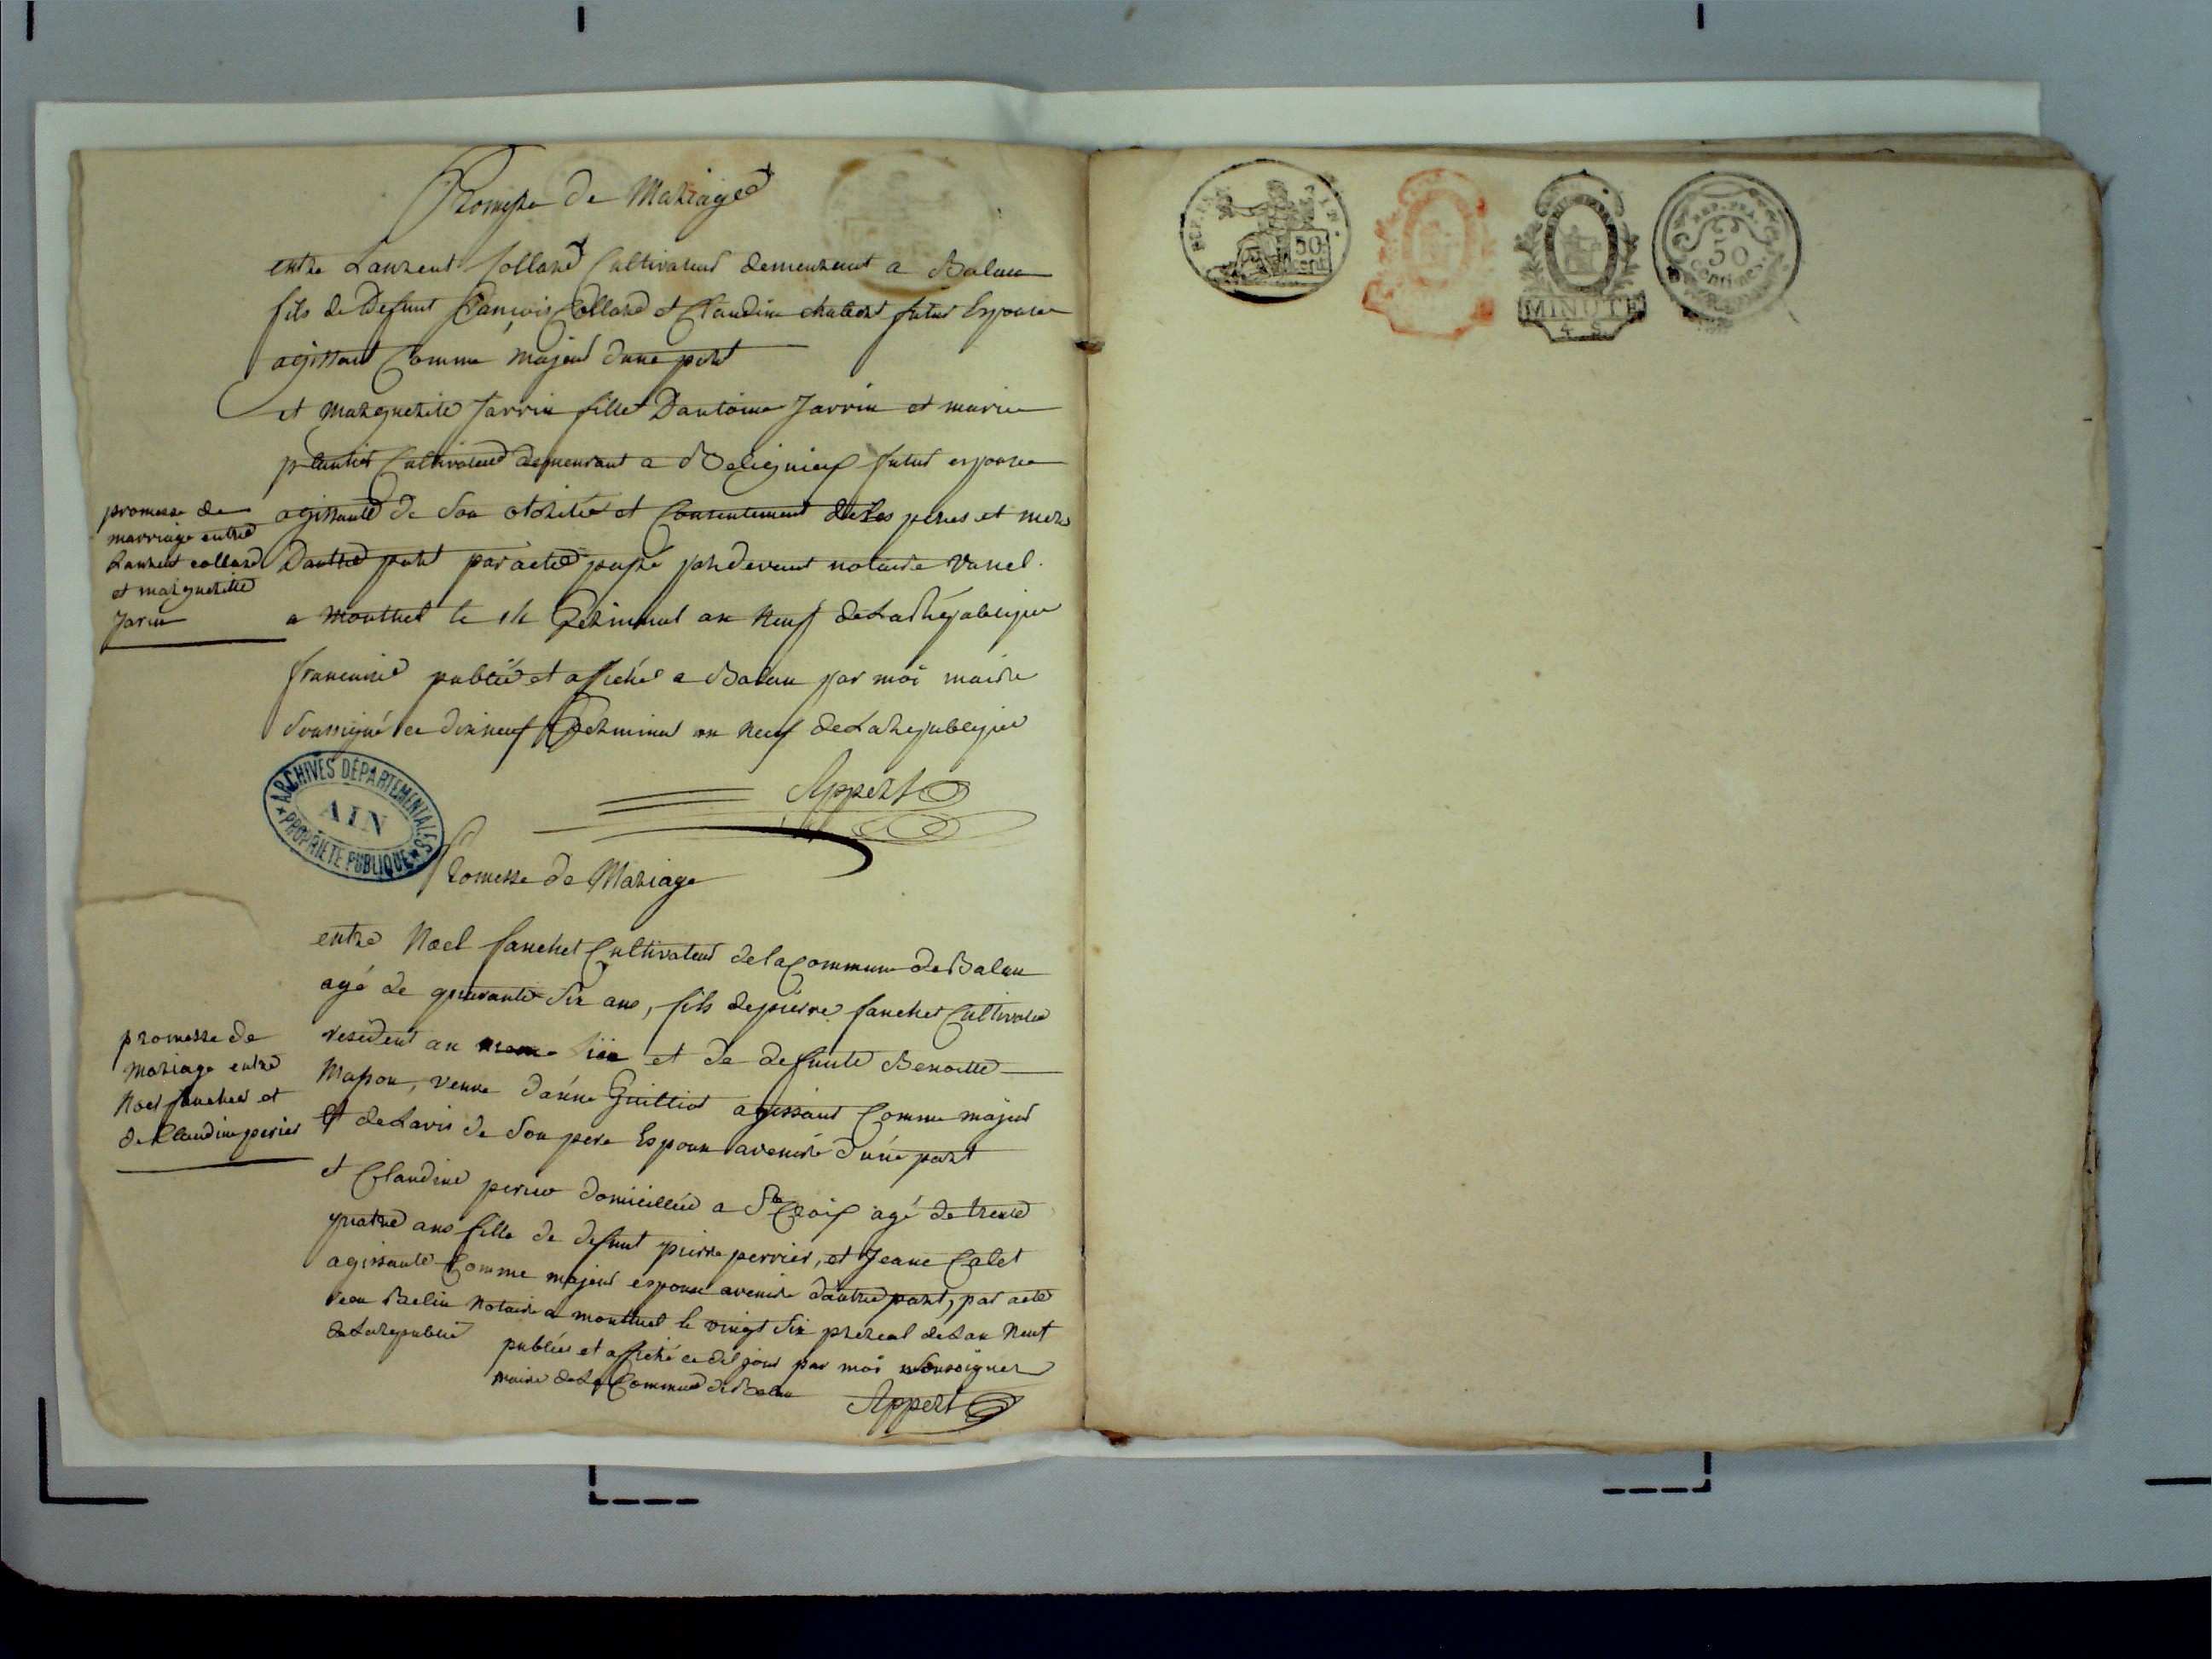 Promesse de Mariage
entre Laurent Collard Cultivateur demeurant a Balan
fils de Defunt François Collard et Claudine futur Espouse
agissant Comme Majeur dune part
et Marguerite Jarrin fille Dantoine Jarrin et marie
Cultivateur demeurant a Belignieux futur espouse
agissante de Son otorite et Consentement de Ses peres et mere
Dautre part par acte passé pardevant notaire Vanel
a Montluel le Germinal an Neuf de La République
francaise publié et affiché a Balan par moi maire
Soussigné ce dix neuf Germinal an neuf de La Republique
Appert
promesse de
marriage entre
Laurent collard
et marguerite
Jarin
ARCHIVES DÉPARTEMENTALES
AIN
PROPRIÉTÉ PUBLIQUE
Promesse de Mariage
entre Noel fanchet Cultivateur de la Commune de Balan
agé de quarante Six ans, fils de pierre fanchet Cultivateur
resident au meme lieu et de defunte Benoitte
Masson, veuve Guilliot agissant Comme majeur
et de Lavis de Son pere Espoux avenir dune part
et Claudine perier domicillée a Ste Croix agé de trente
quatre ans fille de defunt pierre perrier, et Jeane Calet
agissante Comme majeur espouse avenire dautre part, par acte
Belin Notaire a montluel le vingt Six prereal de Lan Neuf
de La republie
publiée et affiché ce dit jour par moi Sousoigner
maire de La Commune de Balan
Appert
promesse de
Mariage entre
Noel fanchet et
de Claudine perier
50
cent
MINUTE
REP. FRA.
50
centimes